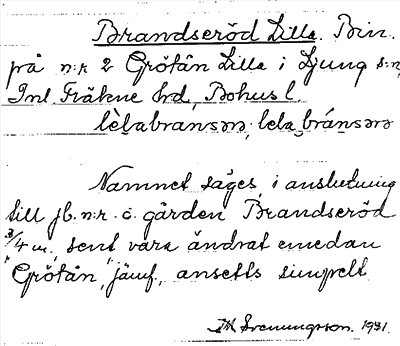 Brandseröd Lilla. Bin.
på n:r 2 Grötån Lilla i Ljung s:n,
Inl. Fräkne hd, Bohus l.
lèlabransəɹə; lela bránsəɹə
Namnet säges, i anslutning
till jb. n:r. å gården Brandseröd
3/4 m., sent vara ändrat emedan
"Grötån", jämf., ansetts simpelt.
Svenungsson. 1931.